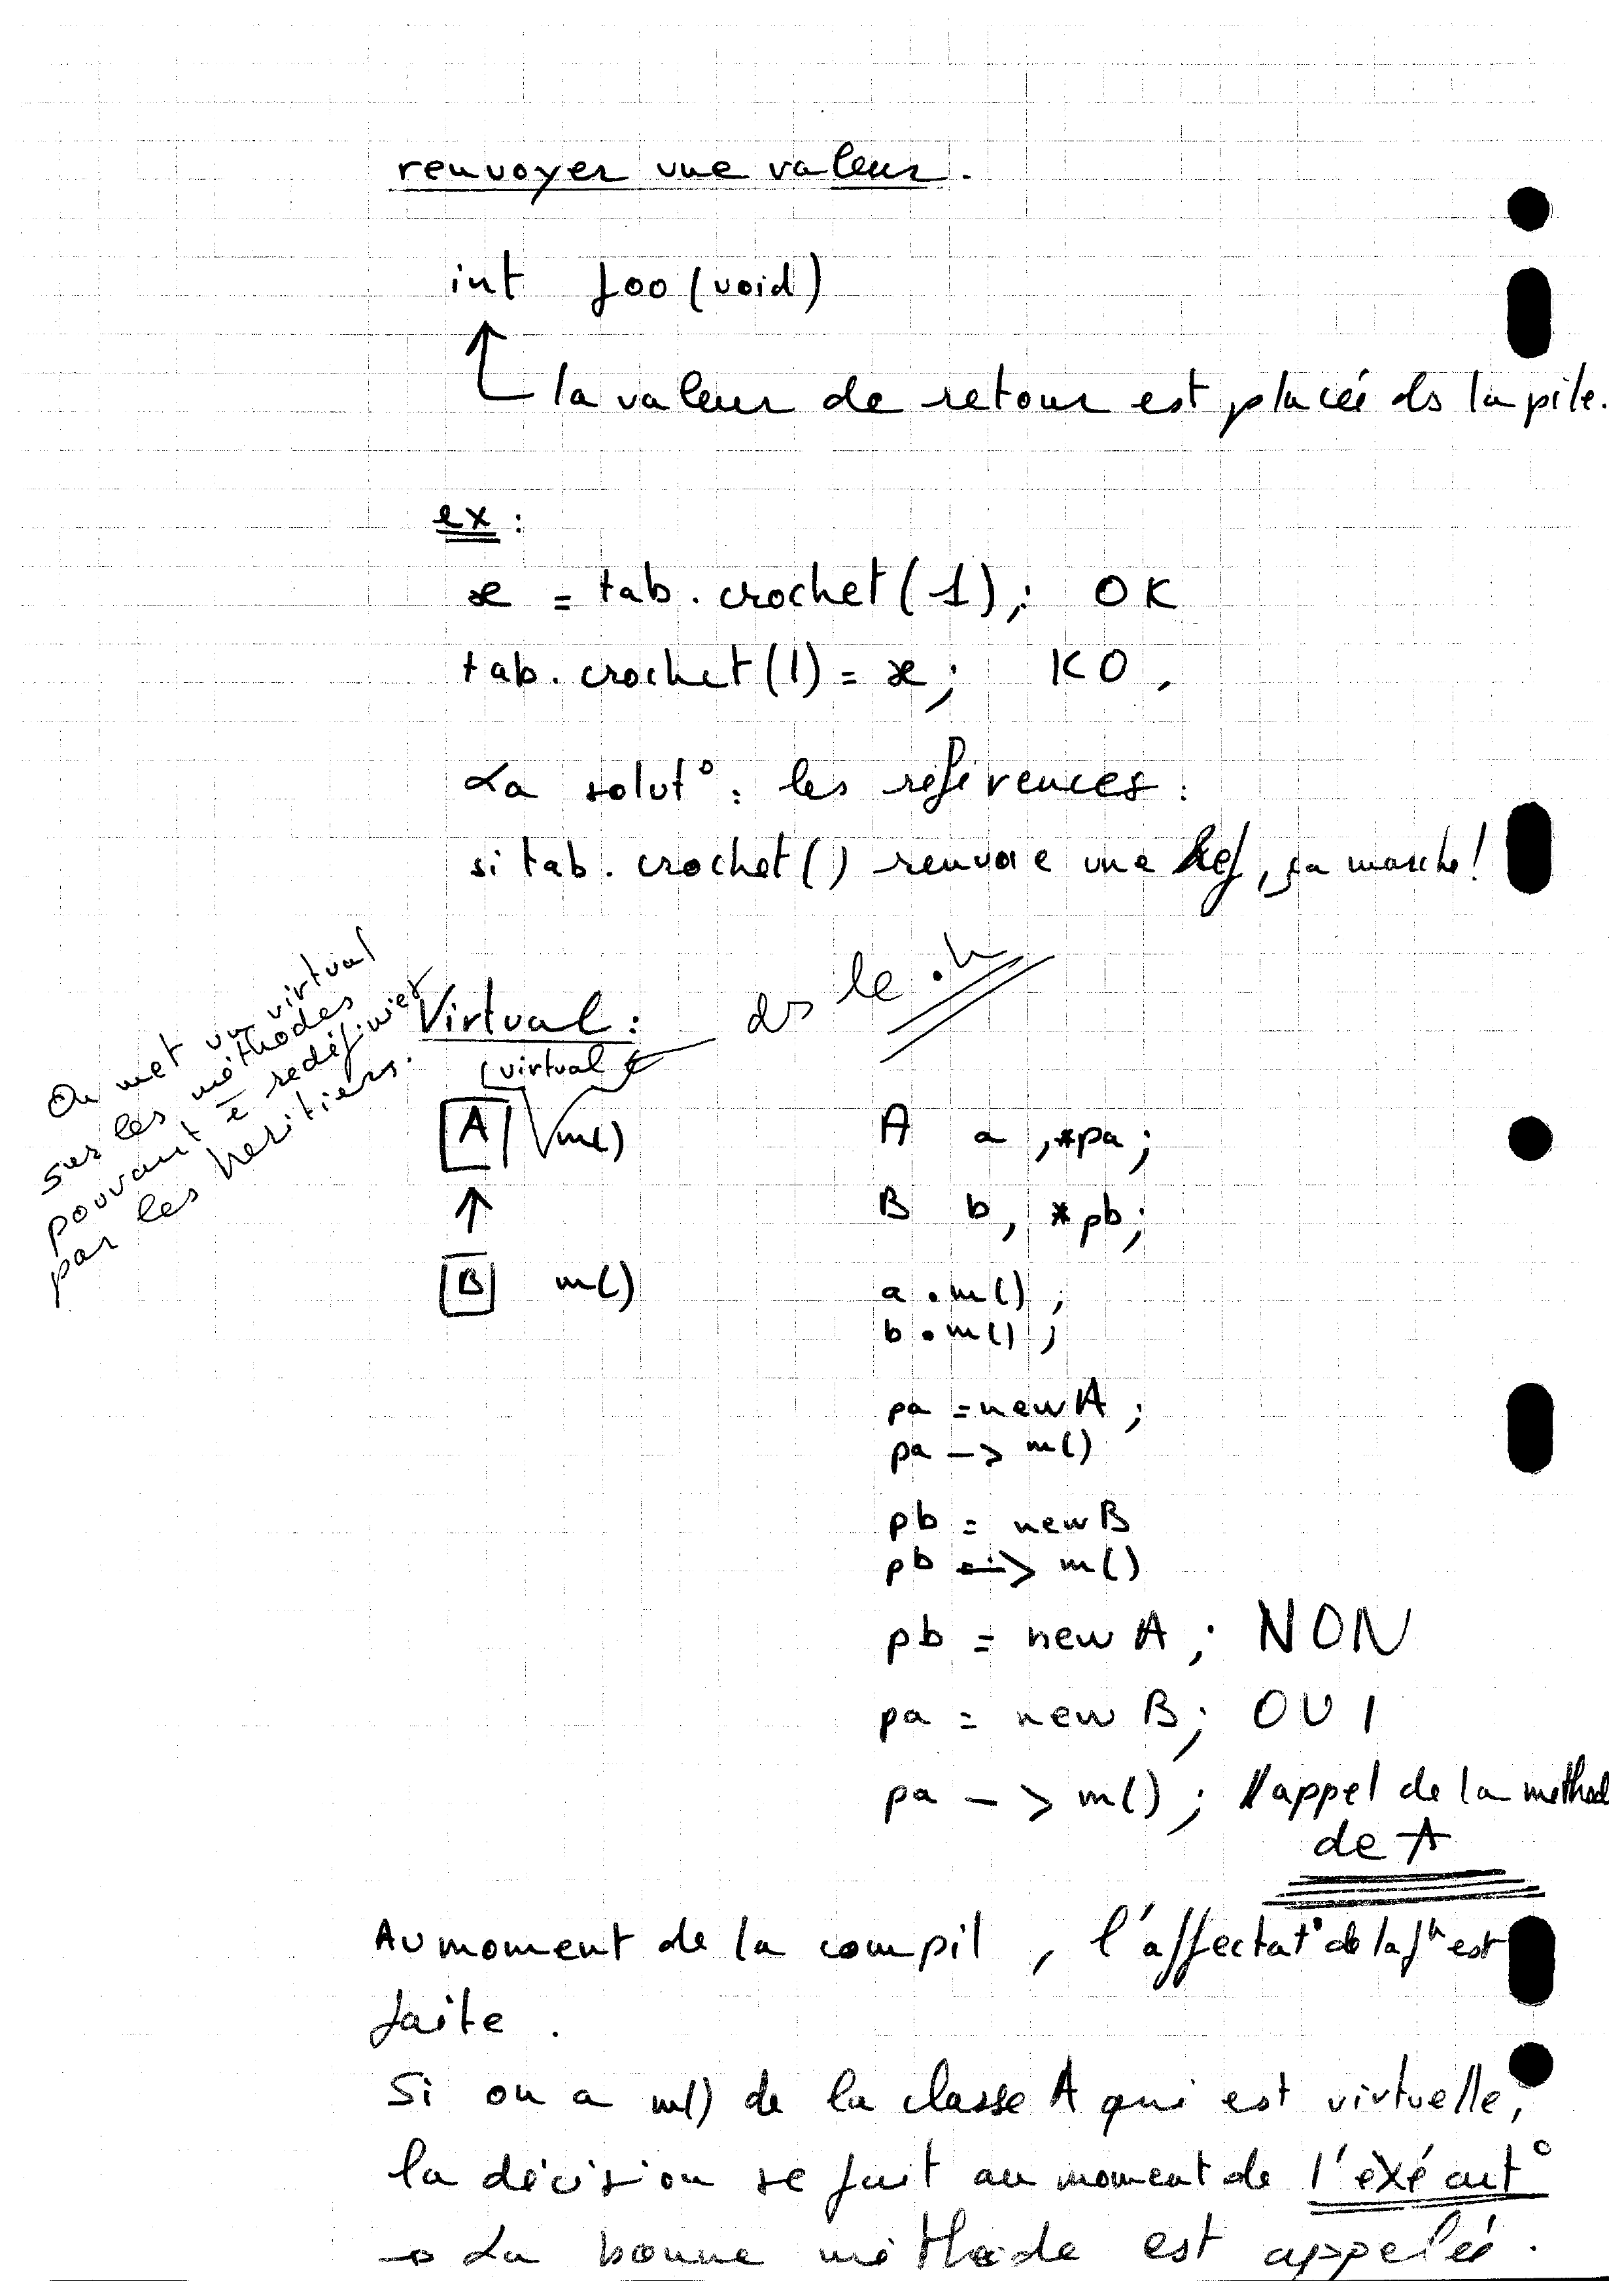 renvoyer une valeur.
int foo(void)
la valeur de retour est placée ds la pile.
ex :
x = tab.crochet(1); OK
tab.crochet(1) = x; KO,
La solut° : les références :
si tab.crochet() renvoie une Ref, ça marche!
On met un virtual
sur les méthodes
pouvant ê redéfinies
par les heritiers.
Virtual :
ds le .h
virtual
A m()
B m()
A a, *pa;
B b, *pb;
a.m();
b.m();
pa = new A;
pa -> m()
pb = new B
pb -> m()
pb = new A; NON
pa = new B; OUI
pa -> m(); // appel de la méthod
de A
Au moment de la compil, l'affectat° de la f^n est
faite.
Si on a m() de la classe A qui est virtuelle,
la décision se fait au moment de l'exécut°
→ La bonne méthode est appelée.